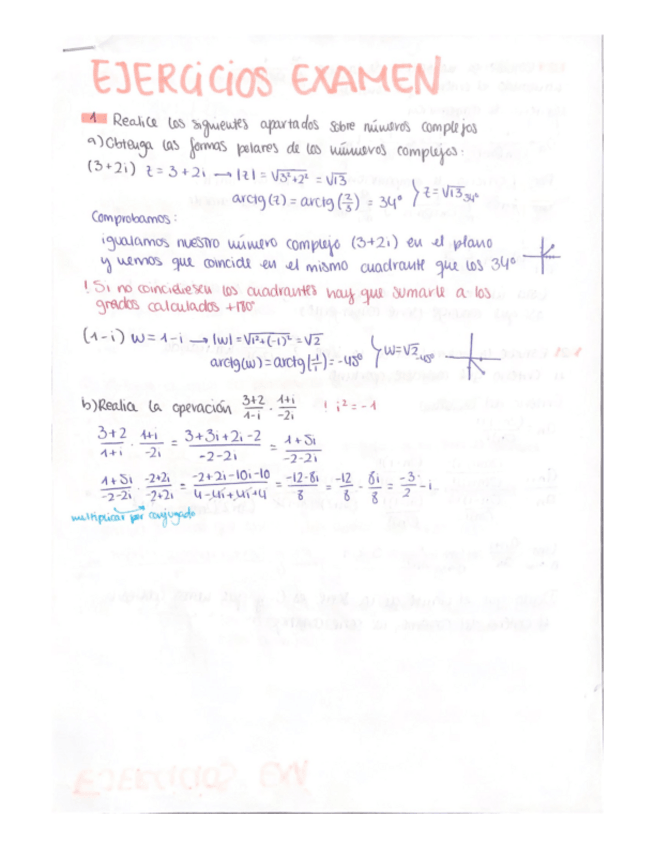 EJERCICIOS EXAMEN
1 Realice los siguientes apartados sobre números complejos
a) Obtenga las formas polares de los números complejos:
(3+2i) z = 3+2i → |z| = √3²+2² = √13
arctg(z) = arctg(2/3) = 34º } z = √13 34º
Comprobamos:
igualamos nuestro número complejo (3+2i) en el plano
y vemos que coincide en el mismo cuadrante que los 34º
! Si no coincidiesen los cuadrantes hay que sumarle a los
grados calculados +180º
(1-i) w = 1-i → |w| = √1²+(-1)² = √2
arctg(w) = arctg(-1/1) = -45º } w = √2 -45º
b) Realice la operación 3+2/1-i · 1+i/-2i ! i² = -1
3+2/1+i · 1+i/-2i = 3+3i+2i-2/-2-2i = 1+5i/-2-2i
1+5i/-2-2i · -2+2i/-2+2i = -2+2i-10i-10/4-4i+4i+4 = -12-8i/8 = -12/8 - 8i/8 = -3/2 - i
multiplicar por conjugado